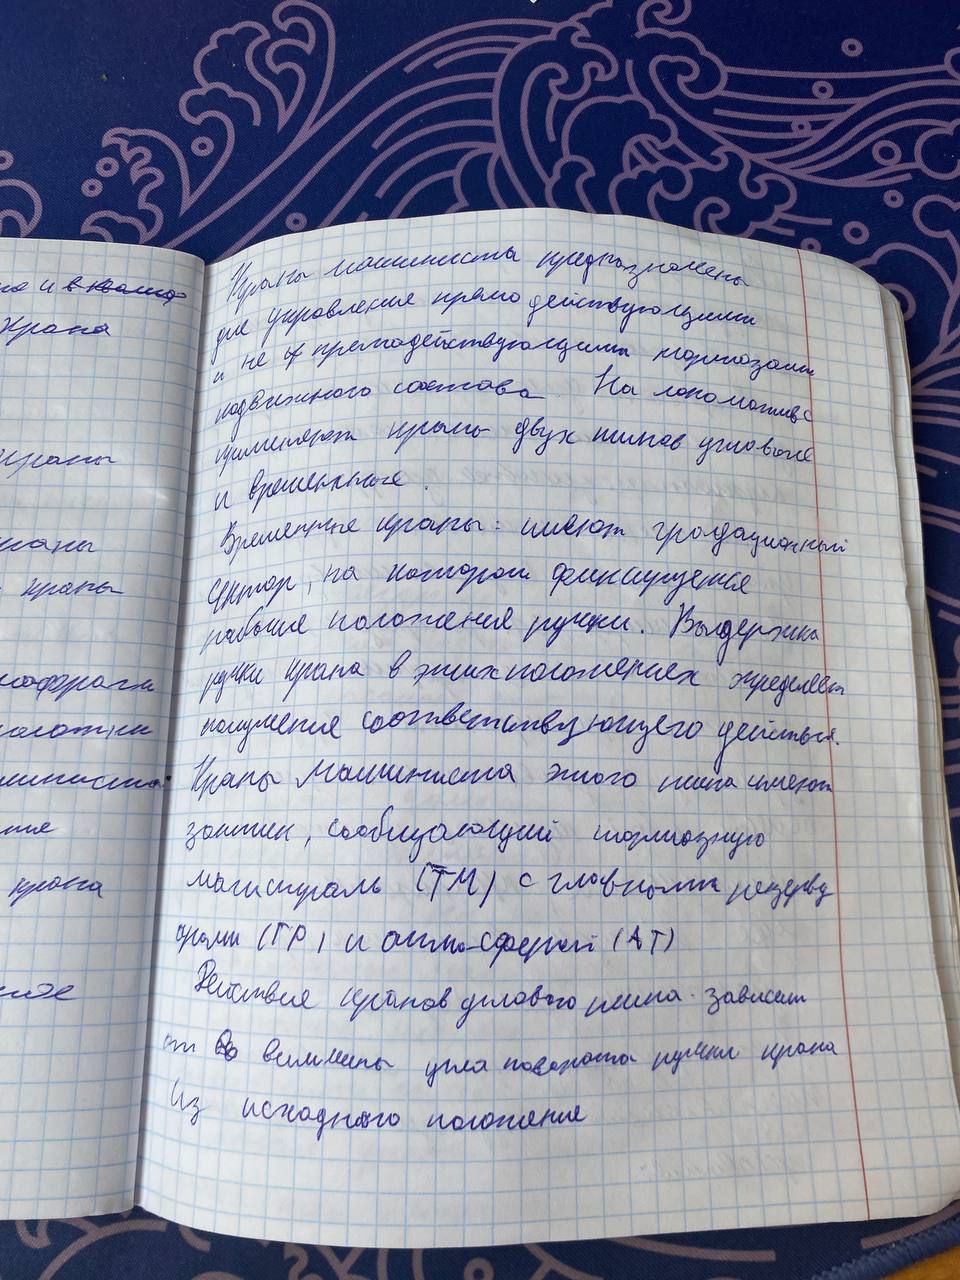 но и в
Крана
краны
краны
краны
диафрагм
машиниста
крана
Краны машиниста предназначены
для управления прямодействующими
и не прямодействующими тормозами
подвижного состава На локомотивс
применяют краны двух типов угловые
и временные.
Временные краны: имеют градационный
сектор, на котором фиксируется
рабочие положения ручки. Выдержка
ручки крана в этих положениях определяет
получение соответствующего действия.
Краны машиниста этого типа имеют
золотник, сообщающий тормозную
магистраль (ТМ) с главными резерву
арами (ГР) и атмо-сферой (АТ)
Действие кранов углового типа зависит
от величины угла поворота ручки крана
Из исходного положения